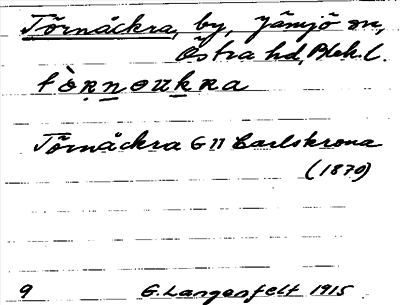 Törnåckra, by, Jämjö sn,
Östra hd, Blek. l.
tò̤ṛṇou̱ḵra
Törnåckra G II Carlskrona
(1870)
9 G. Langenfelt 1915